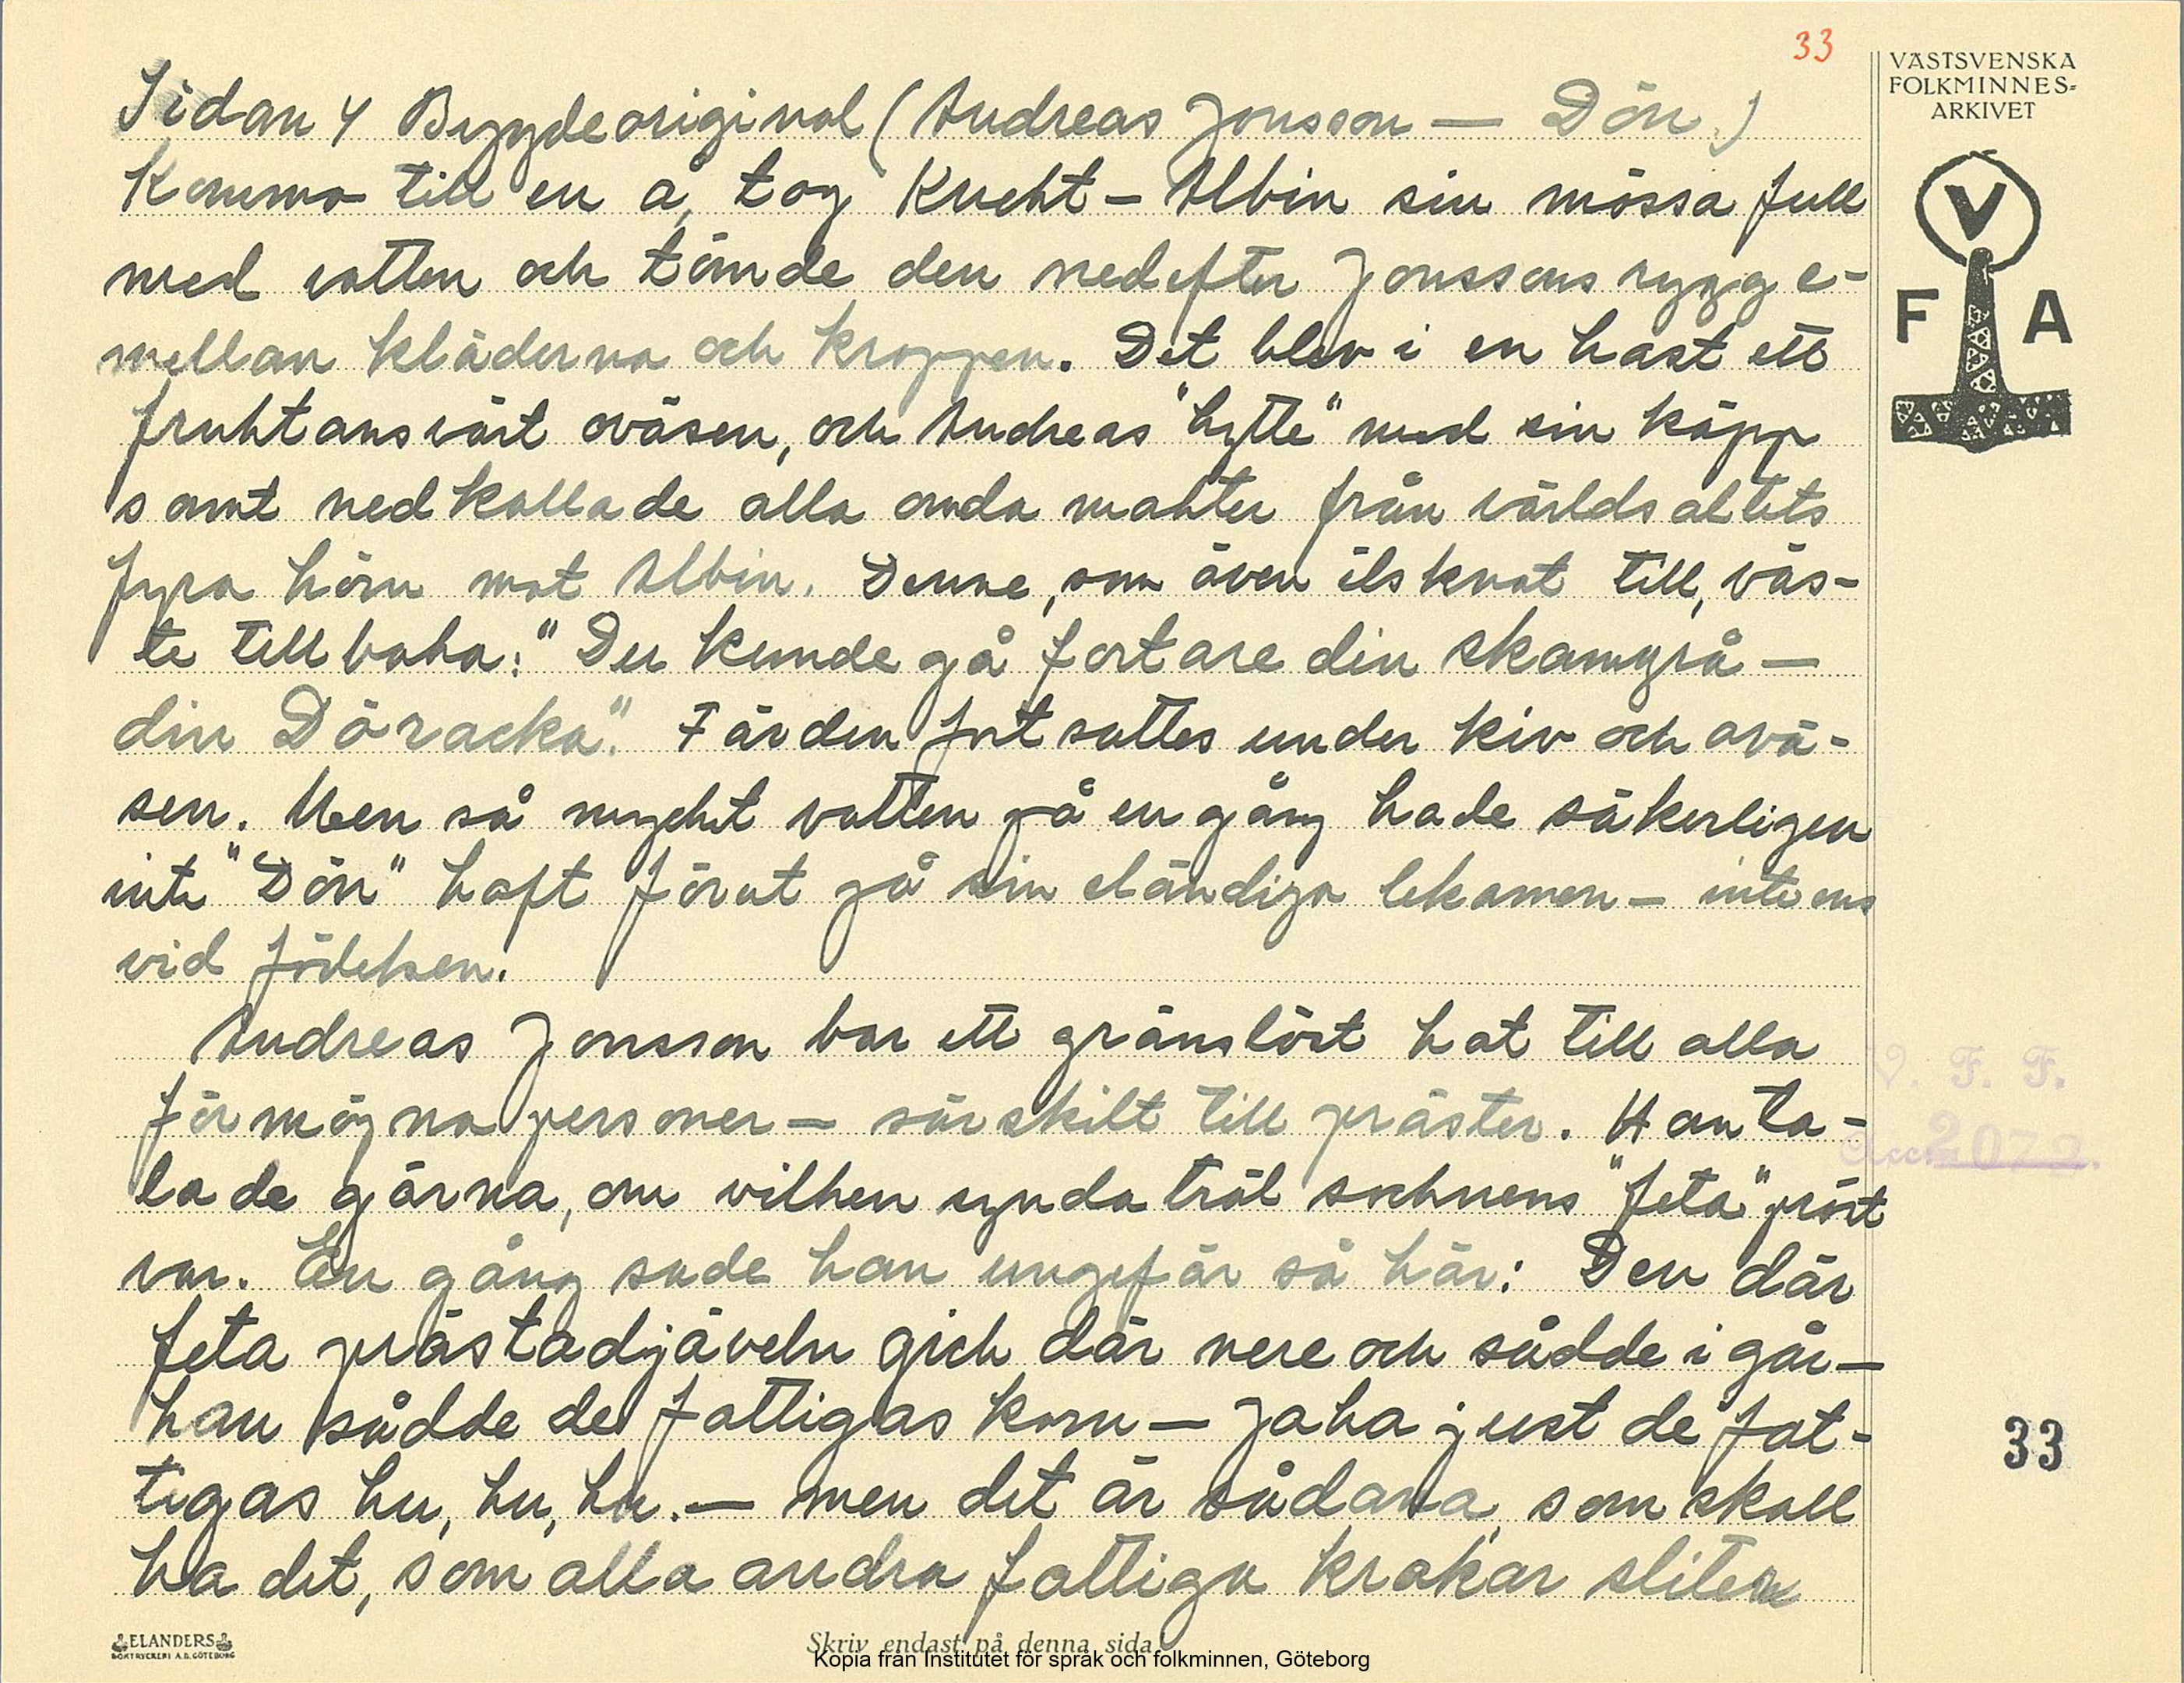 33
VÄSTSVENSKA
FOLKMINNES-
ARKIVET
V
F A
Sidan 4 Bygdeoriginal (Andreas Jonsson — Dön.)
Komma till en å, tog Knekt-Albin sin mössa full
med vatten och tömde den nedefter Jonssons rygg e-
mellan kläderna och kroppen. Det blev i en hast ett
fruktansvärt oväsen, och Andreas "hytte" med sin käpp
samt nedkallade alla onda makter från världsalltets
fyra hörn mot Albin. Denne, som även ilsknat till, väs-
te tillbaka: "Du kunde gå fortare din skamgrå —
din Döracka". Färden fortsattes under kiv och ovä-
sen. Men så mycket vatten på en gång hade säkerligen
inte "Dön" haft förut på sin eländiga lekamen — inte ens
vid födelsen.
Andreas Jonsson bar ett gränslöst hat till alla
förmögna personer — särskilt till präster. Han ta-
lade gärna, om vilken syndaträl socknens "feta" präst
var. En gång sade han ungefär så här: Den där
feta prästadjäveln gick där nere och sådde i går —
han sådde de fattigas korn — jaha just de fat-
tigas hu, hu, hu. — men det är sådana, som skall
ha det, som alla andra fattiga krakar sliter
V. F. F.
Acc. 2072.
33
ELANDERS
BOKTRYCKERI A.B. GÖTEBORG
Skriv endast på denna sida.
Kopia från Institutet för språk och folkminnen, Göteborg